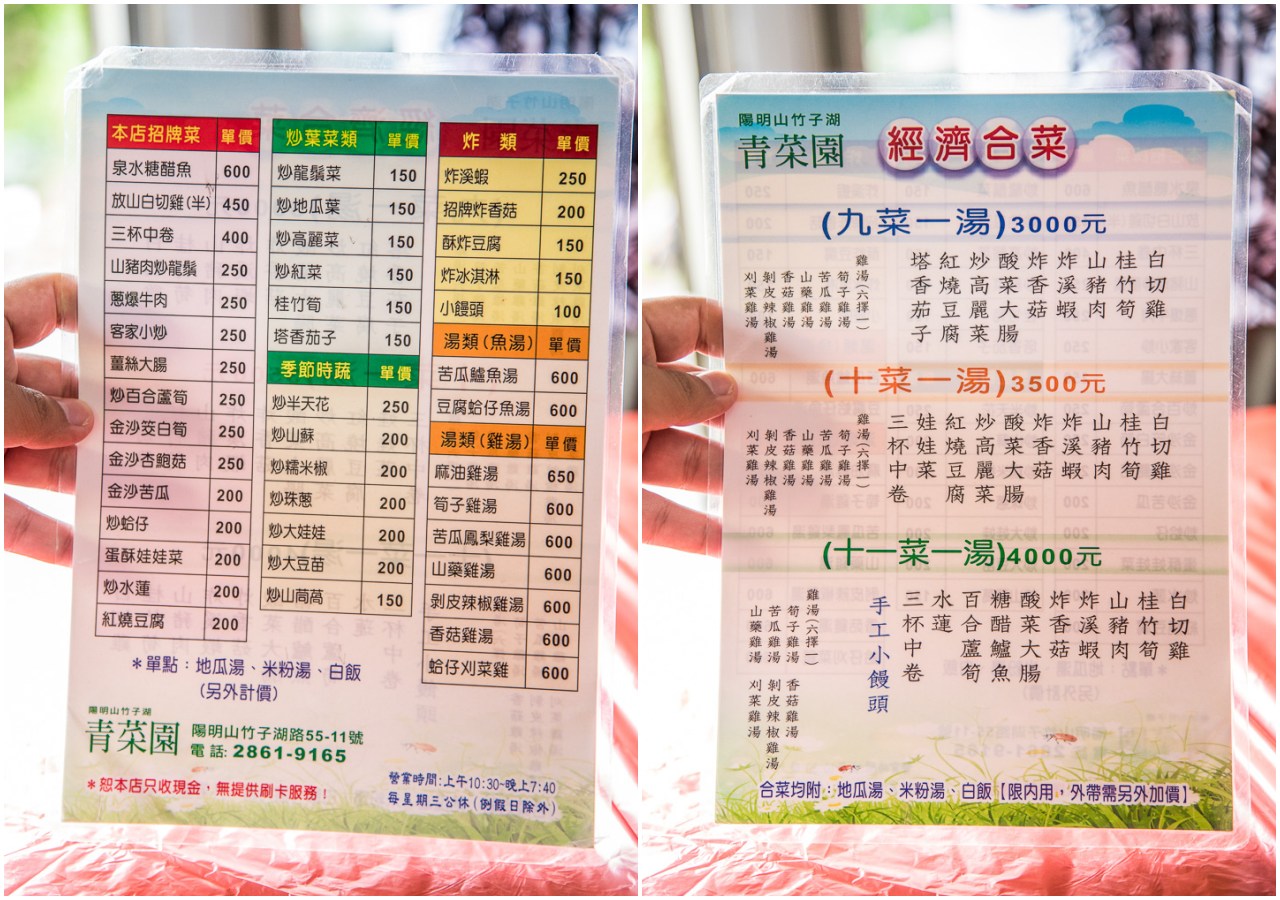 本店招牌菜 單價
泉水糖醋魚 600
放山白切雞(半) 450
三杯中卷 400
山豬肉炒龍鬚 250
蔥爆牛肉 250
客家小炒 250
薑絲大腸 250
炒百合蘆筍 250
金沙筊白筍 250
金沙杏鮑菇 250
金沙苦瓜 200
炒蛤仔 200
蛋酥娃娃菜 200
炒水蓮 200
紅燒豆腐 200
炒葉菜類 單價
炒龍鬚菜 150
炒地瓜葉 150
炒高麗菜 150
炒紅菜 150
桂竹筍 150
塔香茄子 150
季節時蔬 單價
炒半天花 250
炒山蘇 200
炒糯米椒 200
炒珠蔥 200
炒大娃娃 200
炒大豆苗 200
炒山茼萵 150
炸 類 單價
炸溪蝦 250
招牌炸香菇 200
酥炸豆腐 150
炸冰淇淋 150
小饅頭 100
湯類(魚湯) 單價
苦瓜鱸魚湯 600
豆腐蛤仔魚湯 600
湯類(雞湯) 單價
麻油雞湯 650
筍子雞湯 600
苦瓜鳳梨雞湯 600
山藥雞湯 600
剝皮辣椒雞湯 600
香菇雞湯 600
蛤仔刈菜雞 600
*單點：地瓜湯、米粉湯、白飯
(另外計價)
陽明山竹子湖
青菜園
陽明山竹子湖路55-11號
電話:2861-9165
*恕本店只收現金，無提供刷卡服務！
營業時間:上午10:30-晚上7:40
每星期三公休(例假日除外)
陽明山竹子湖
青菜園
經濟合菜
(九菜一湯)3000元
白切雞
桂竹筍
山豬肉
炸溪蝦
炸香菇
酸菜大腸
炒高麗菜
紅燒豆腐
塔香茄子
雞湯(六擇一)
筍子雞湯
苦瓜雞湯
山藥雞湯
香菇雞湯
剝皮辣椒雞湯
刈菜雞湯
(十菜一湯)3500元
白切雞
桂竹筍
山豬肉
炸溪蝦
炸香菇
酸菜大腸
炒高麗菜
紅燒豆腐
娃娃菜
三杯中卷
雞湯(六擇一)
筍子雞湯
苦瓜雞湯
山藥雞湯
香菇雞湯
剝皮辣椒雞湯
刈菜雞湯
(十一菜一湯)4000元
白切雞
桂竹筍
山豬肉
炸溪蝦
炸香菇
酸菜大腸
糖醋鱸魚
百合蘆筍
水蓮
三杯中卷
手工小饅頭
雞湯(六擇一)
筍子雞湯
苦瓜雞湯
山藥雞湯
香菇雞湯
剝皮辣椒雞湯
刈菜雞湯
合菜均附：地瓜湯、米粉湯、白飯【限內用，外帶需另外加價】